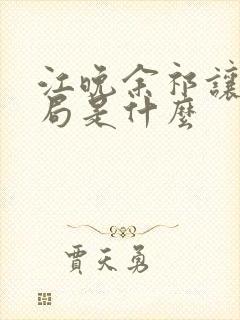 江晚余祁讓
局是什麼
賈天勇